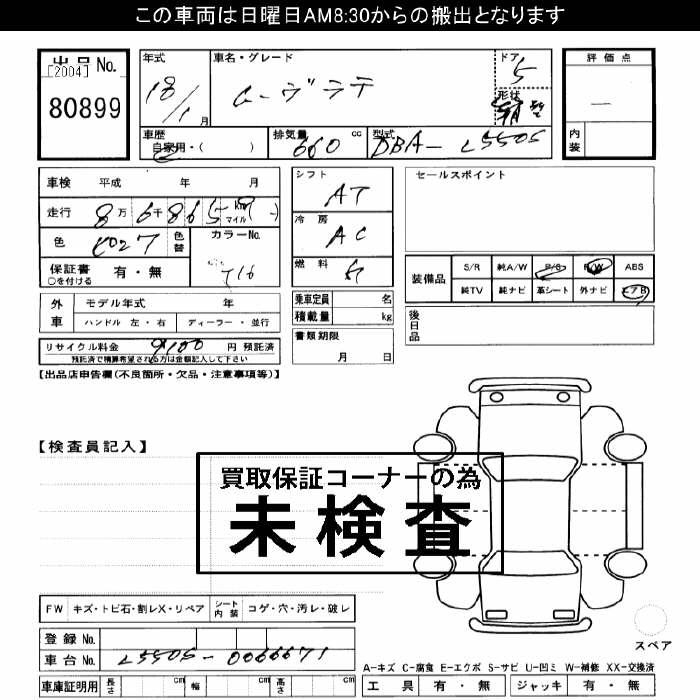 この車両は日曜日AM8:30からの搬出となります
出品No.
[2004]
80899
年式
18/1月
車名・グレード
ムーヴラテ
ドア
5
形状
評価点
内装
車歴
自家用・( )
排気量 cc
660
型式
DBA- L550S
車検 平成 年 月
走行 8万6千865 km マイル
色
色替
カラーNo.
T16
保証書 ○を付ける 有・無
シフト
AT
冷房
AC
燃料
ガ
セールスポイント
装備品
S/R 純A/W P/S P/W ABS
純TV 純ナビ 革シート 外ナビ エアB
外車
モデル年式 年
ハンドル 左・右 ディーラー・並行
乗車定員 名
積載量 kg
後日品
リサイクル料金 9100 円 預託済
預託済で精算希望される方は金額記入して下さい
書類期限
月 日
【出品店申告欄(不良箇所・欠品・注意事項等)】
【検査員記入】
買取保証コーナーの為
未検査
FW キズ・トビ石・割レX・リペア シート内装 コゲ・穴・汚レ・破レ
登録No.
車台No. L550S-0066671
スペア
A-キズ C-腐食 E-エクボ S-サビ U-凹ミ W-補修 XX-交換済
車庫証明用 長さ cm 幅 cm 高さ cm
工具 有・無 ジャッキ 有・無